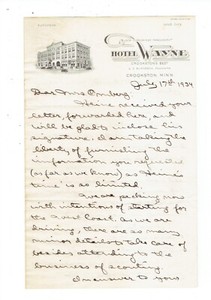 HOTEL WAYNE
CROOKSTON'S BEST
CROOKSTON, MINN.
July 17th 1934
Dear Mrs Omberg
Heinie received your
letter forwarded here, and
will be glad to inclose his
signature. I am taking the
liberty of furnishing the
information you requested
(as far as we know) as Heinie's
time is so limited.
We are packing now
with intentions of starting for
the West Coast. As we are
driving, there are so many
minor details to take care of
besides attending to the
business of scouting.
In answer to your